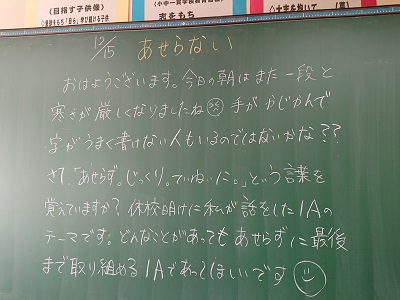 〈目指す子供像〉
◇意欲をもち「自ら」学び続ける子供
表をもち
12/15 あせらない
おはようございます。今日の朝はまた一段と
寒さが厳しくなりましたね☹ 手がかじかんで
字がうまく書けない人もいるのではないかな??
さて、「あせらず。じっくり。ていねいに。」という言葉を
覚えていますか? 休校明けに私が話をした1Aの
テーマです。どんなことがあってもあせらずに最後
まで取り組める1Aであってほしいです☺